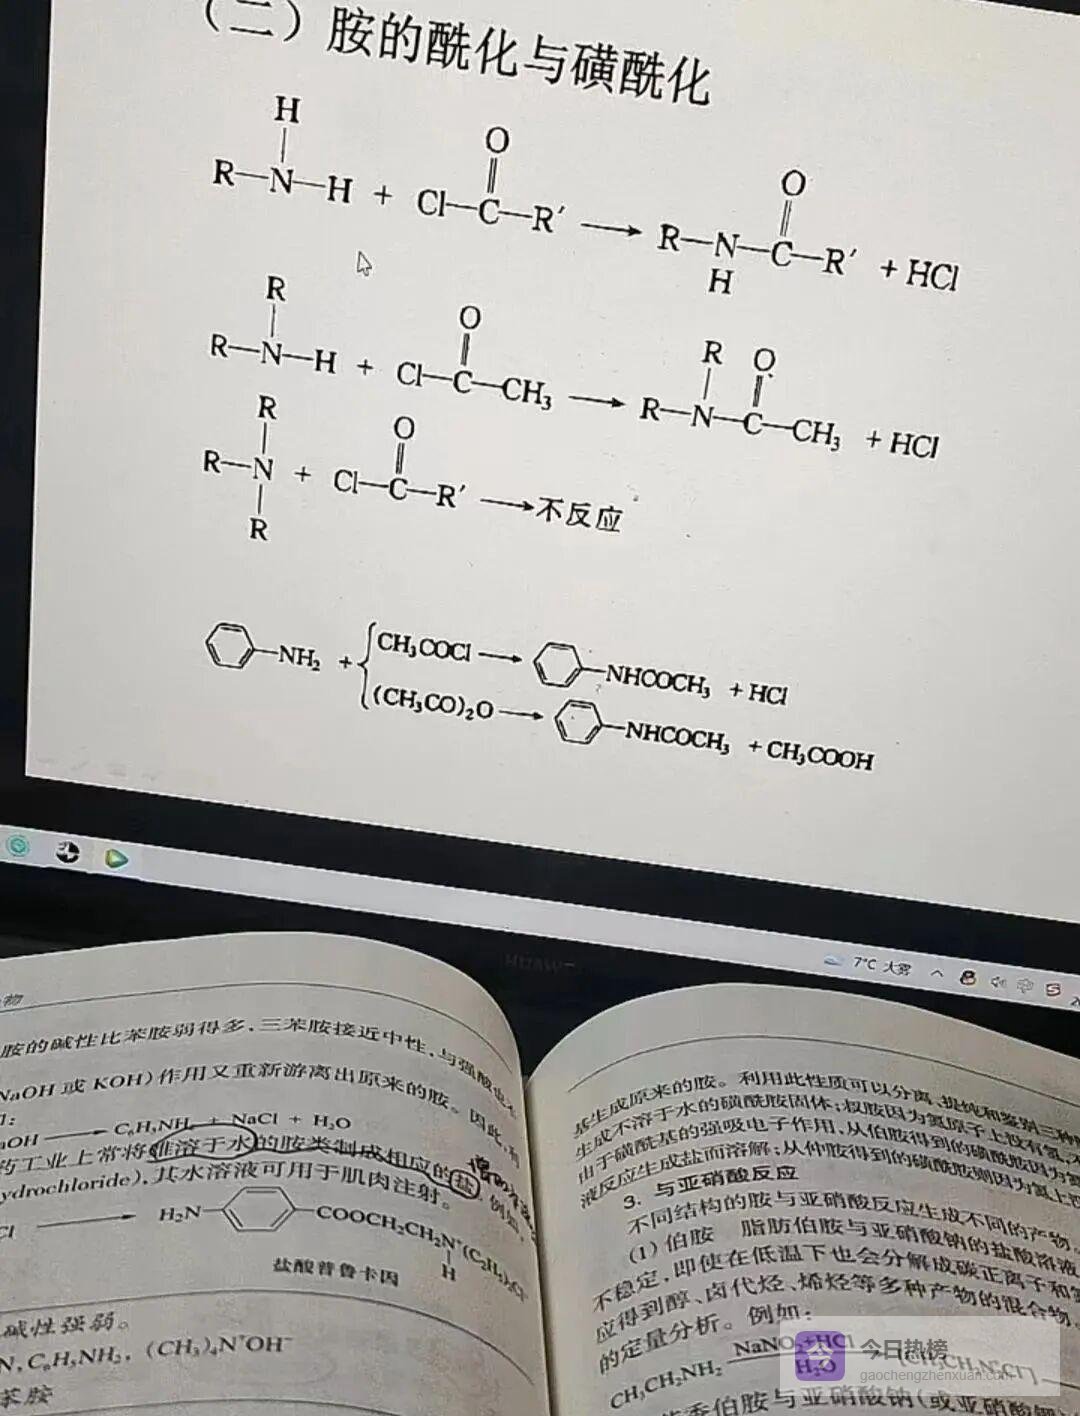 （二）胺的酰化与磺酰化
H
R—N—H + Cl—C—R′ → R—N—C—R′ + HCl
O
O
H
R
R—N—H + Cl—C—CH₃ → R—N—C—CH₃ + HCl
O
R O
R
R—N + Cl—C—R′ → 不反应
O
R
—NH₂ + CH₃COCl → —NHCOCH₃ + HCl
(CH₃CO)₂O → —NHCOCH₃ + CH₃COOH
7°C 大雾
HUAWEI
物
胺的碱性比苯胺弱得多，三苯胺接近中性，与强酸也不
NaOH 或 KOH)作用又重新游离出原来的胺。因此，利
aOH → C₆H₅NH₂ + NaCl + H₂O
药工业上常将难溶于水的胺类制成相应的盐。例如，
ydrochloride)，其水溶液可用于肌肉注射。
Cl → H₂N— —COOCH₂CH₂N⁺(C₂H₅)₂Cl⁻
H
盐酸普鲁卡因
碱性强弱。
N, C₆H₅NH₂, (CH₃)₄N⁺OH⁻
苯胺
基生成原来的胺。利用此性质可以分离、提纯和鉴别三种
生成不溶于水的磺酰胺固体；叔胺因为氮原子上没有氢，不
由于磺酰基的强吸电子作用，从伯胺得到的磺酰胺因为氮
液反应生成盐而溶解；从仲胺得到的磺酰胺则因为氮上
3. 与亚硝酸反应
不同结构的胺与亚硝酸反应生成不同的产物。
(1) 伯胺 脂肪伯胺与亚硝酸钠的盐酸溶液
不稳定，即使在低温下也会分解成碳正离子和氮
应得到醇、卤代烃、烯烃等多种产物的混合物。
的定量分析。例如：
CH₃CH₂NH₂ NaNO₂+HCl H₂O [CH₃CH₂N₂⁺Cl⁻]
香伯胺与亚硝酸钠(或亚硝酸钾)
今日热榜
gaochengzhenxuan.com